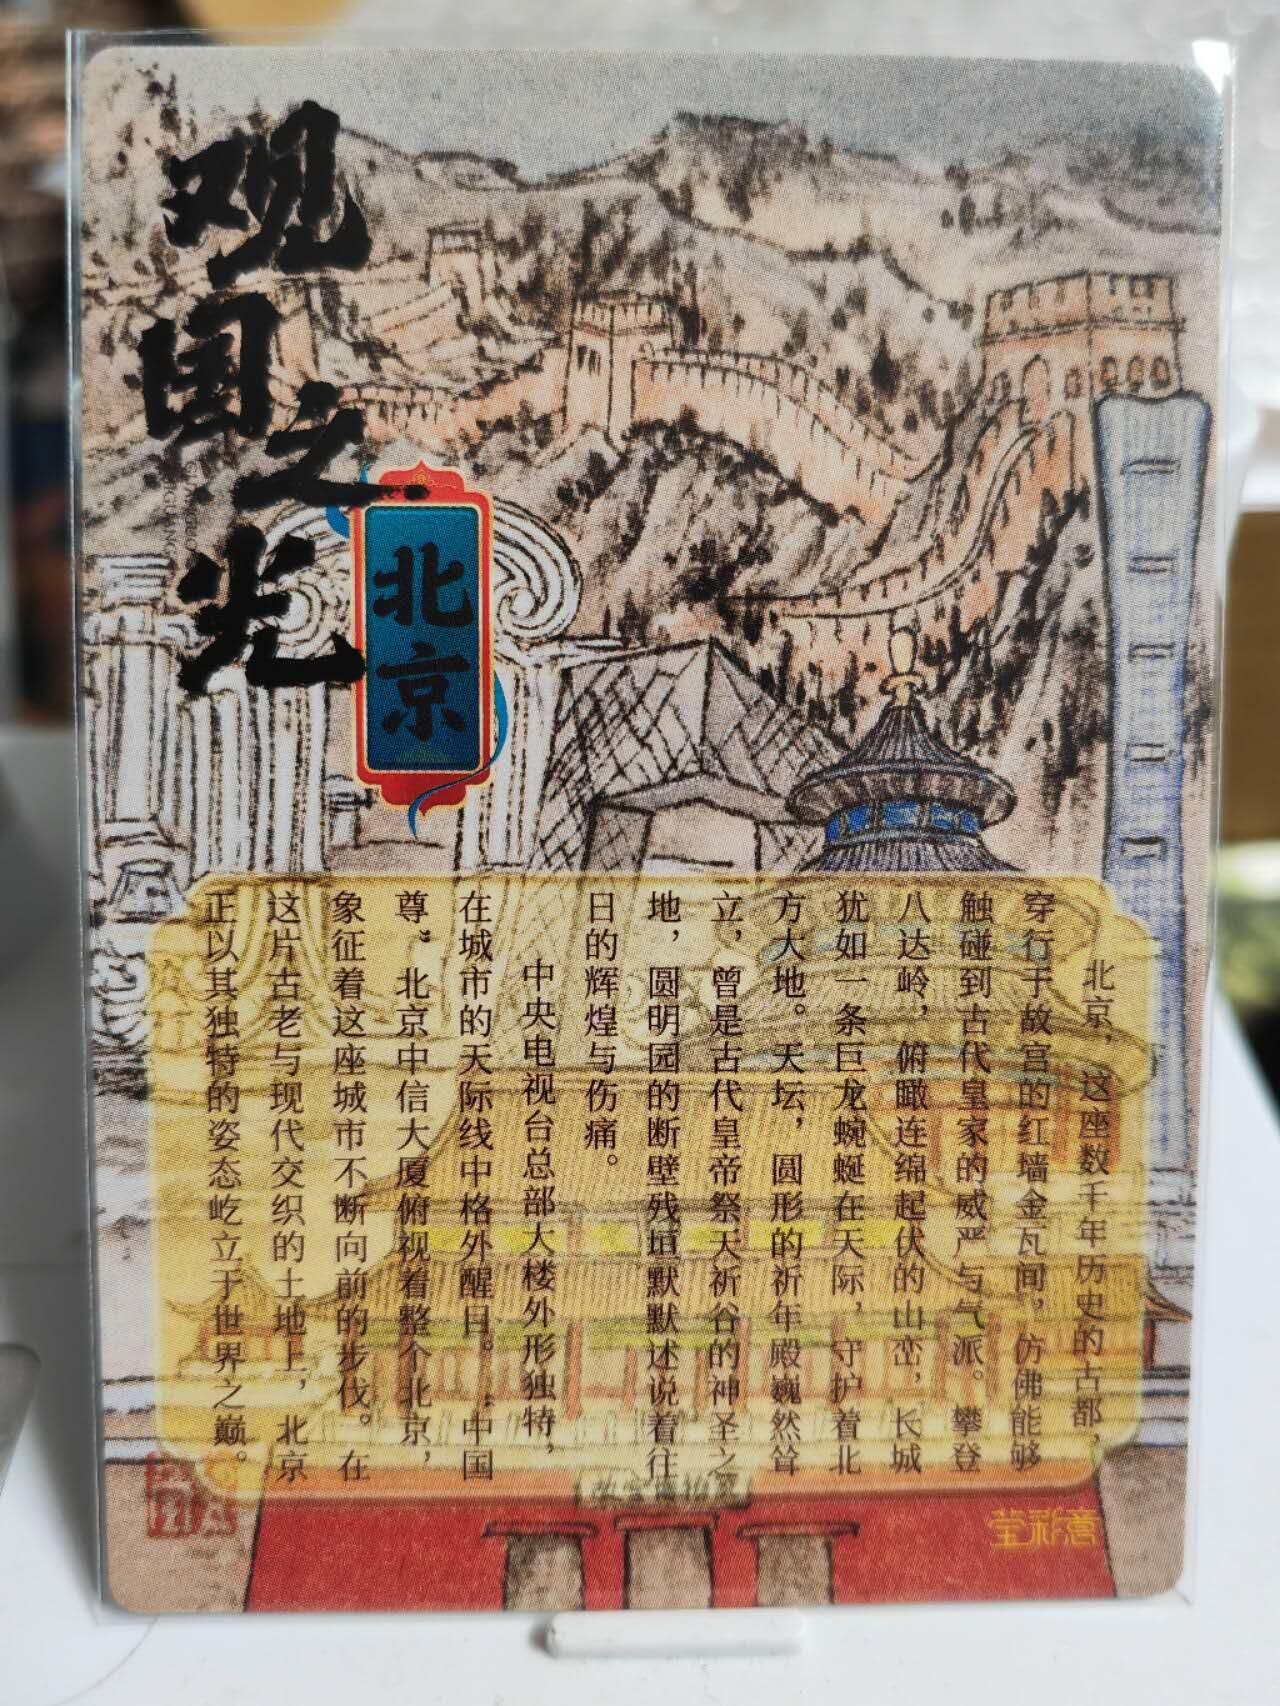 观国之光
北京
北京，这座数千年历史的古都，
穿行于故宫的红墙金瓦间，仿佛能够
触碰到古代皇家的威严与气派。攀登
八达岭，俯瞰连绵起伏的山峦，长城
犹如一条巨龙蜿蜒在天际，守护着北
方大地。天坛，圆形的祈年殿巍然耸
立，曾是古代皇帝祭天祈谷的神圣之
地，圆明园的断壁残垣默默述说着往
日的辉煌与伤痛。
中央电视台总部大楼外形独特，
在城市的天际线中格外醒目。“中国
尊”北京中信大厦俯视着整个北京，
象征着这座城市不断向前的步伐。在
这片古老与现代交织的土地上，北京
正以其独特的姿态屹立于世界之巅。
故宫博物院